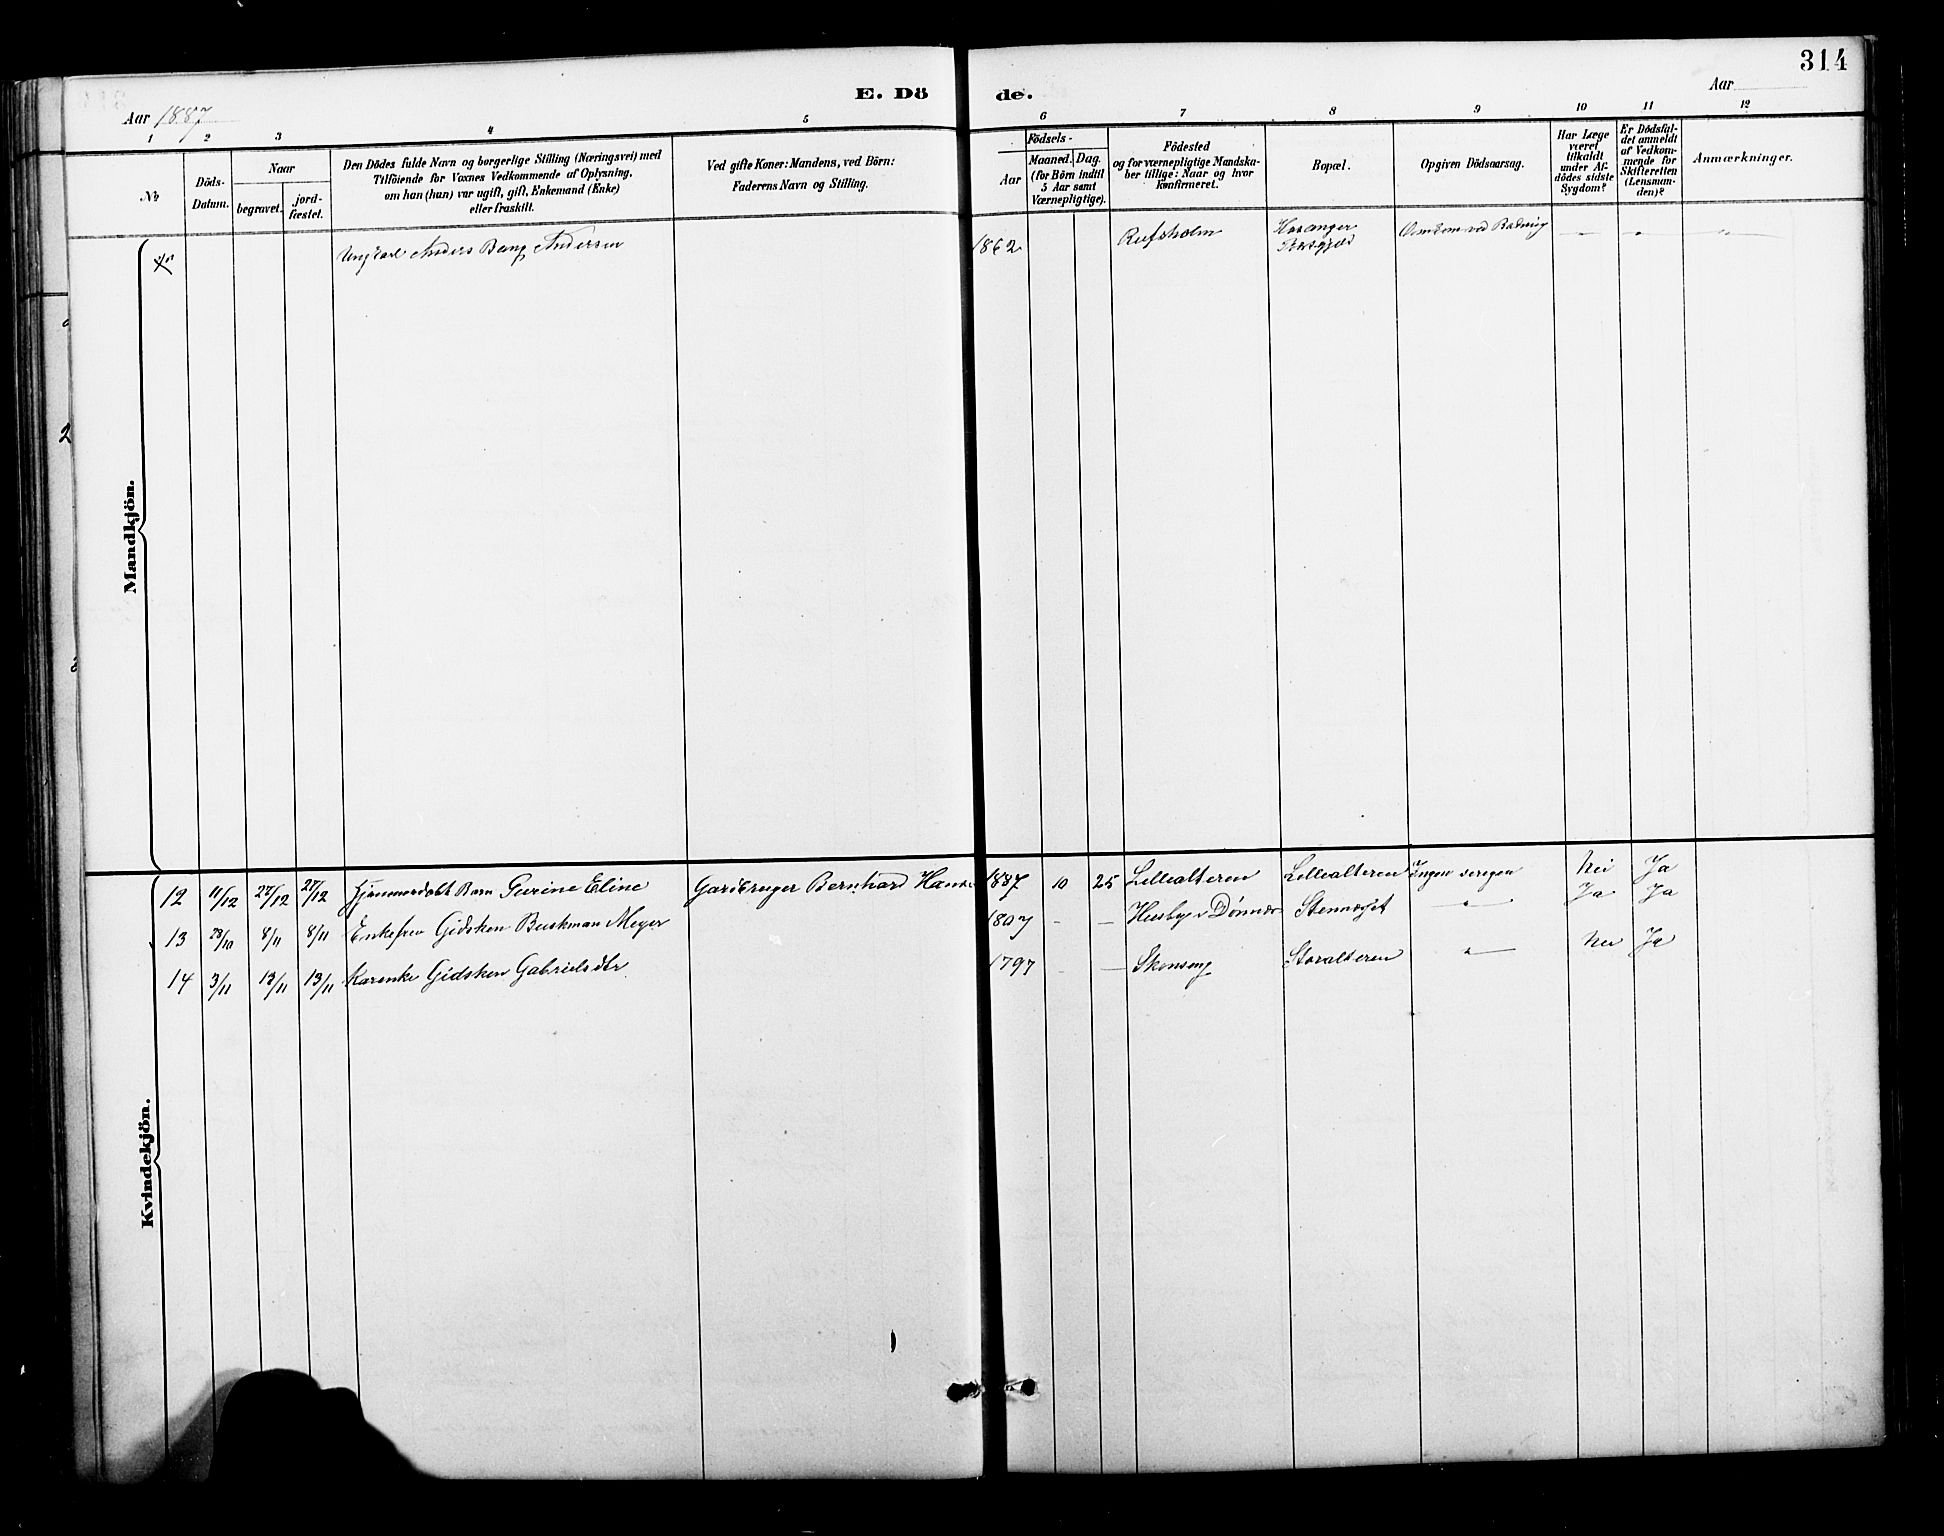 314
E. Dö de.
Aar 1887
Aar
1 2 3 4 5 6 7 8 9 10 11 12
No
Döds-Datum.
Naar
begravet.
jord-fæstet.
Den Dödes fulde Navn og borgerlige Stilling (Næringsvei) med
Tilföiende for Voxnes Vedkommende af Oplysning,
om han (hun) var ugift, gift, Enkemand (Enke)
eller fraskilt.
Ved gifte Koner: Mandens, ved Börn:
Faderens Navn og Stilling.
Födsels-
Aar
Maaned. Dag.
(for Börn indtil
5 Aar samt
Værnepligtige).
Födested
og for værnepligtige Mandska-
ber tillige: Naar og hvor
konfirmeret.
Bopæl.
Opgiven Dödsaarsag.
Har Læge
været
tilkaldt
under Af-
dödes sidste
Sygdom?
Er Dödsfal-
det anmeldt
af Vedkom-
mende for
Skifteretten
(Lensman-
den)?
Anmærkninger.
Mandkjön.
Ungkarl Anders Bang Andersen 1862 Refsholm Omkom ved
Kvindekjön.
12 11/12 27/12 27/12 Hjemmedøbt Barn Gurine Eline Gardbruger Bernhard Hans 1887 10 25 Lillealteren Lillealteren Ingen Nei Ja
13 28/10 8/11 8/11 Enkefru Gidsken Buskman Meyer 1807 - - Husby v Dønnæs Stennæset " Ja Ja
14 3/11 13/11 13/11 Karenke Gidsken Gabrielsdtr 1797 - - Skonseng Storalteren " Nei Ja